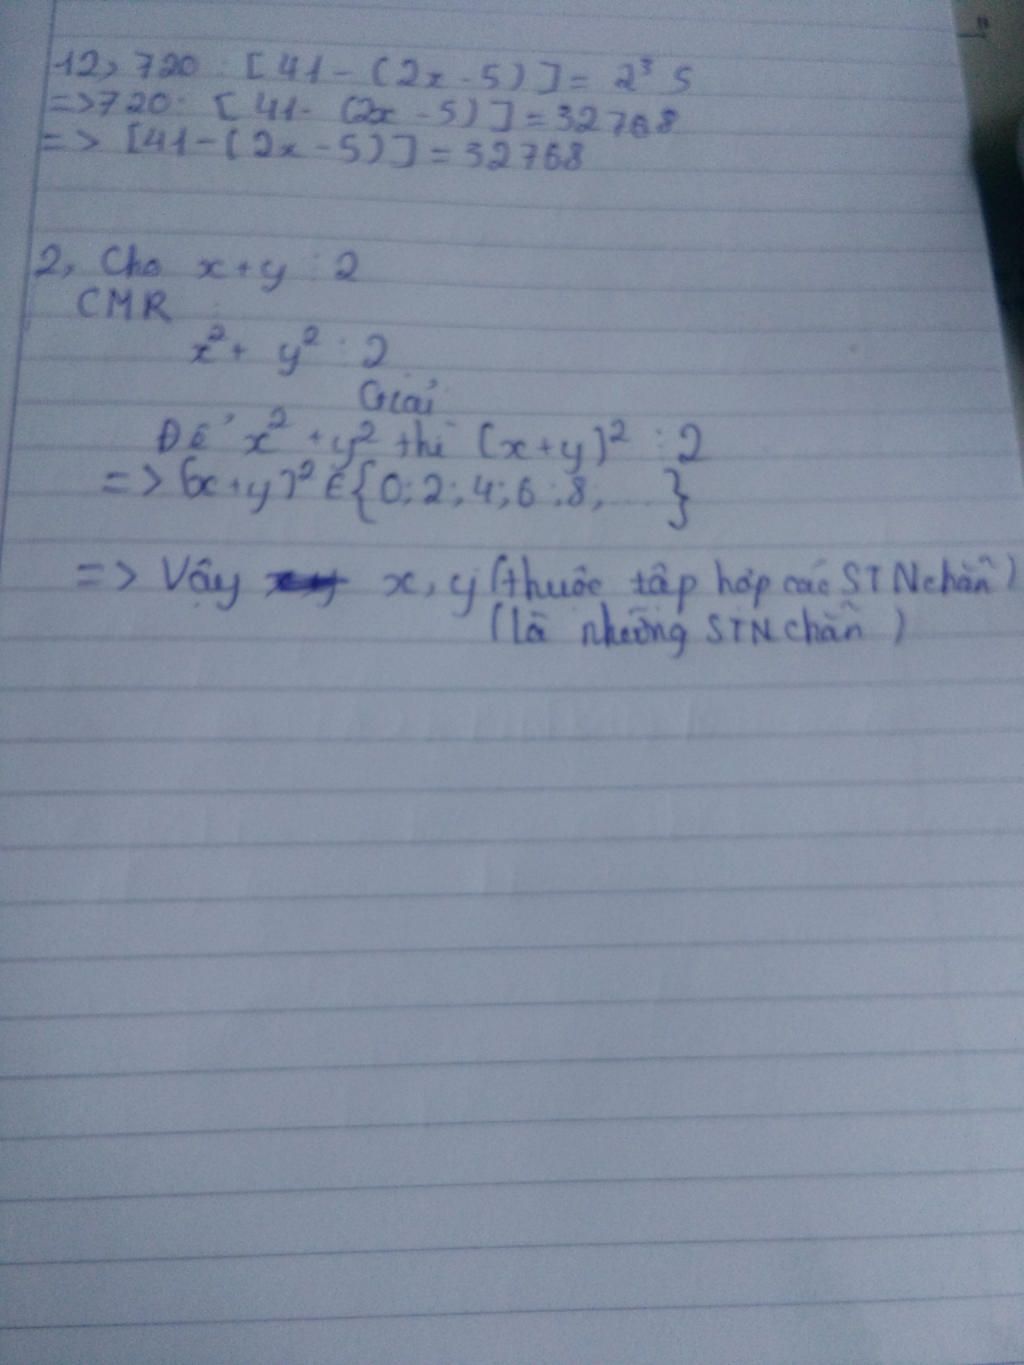 12, 720 : [41 - (2x - 5)] = 2³ 5
=> 720 : [41 - (2x - 5)] = 32768
=> [41 - (2x - 5)] = 32768
2, Cho x + y : 2
CMR
x² + y² : 2
Giải
Để x² + y² thì (x + y)² : 2
=> (x + y)² ∈ {0; 2; 4; 6; 8, .... }
=> Vậy x, y (thuộc tập hợp các STN chẵn)
(là những STN chẵn)